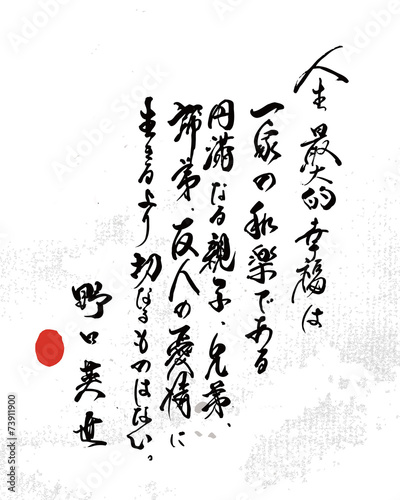 人生最大的幸福は
一家の和楽である
円満なる親子、兄弟、
師弟、友人の愛情に
生きるより切なるものはない。
野口英世
Adobe Stock | #73911900